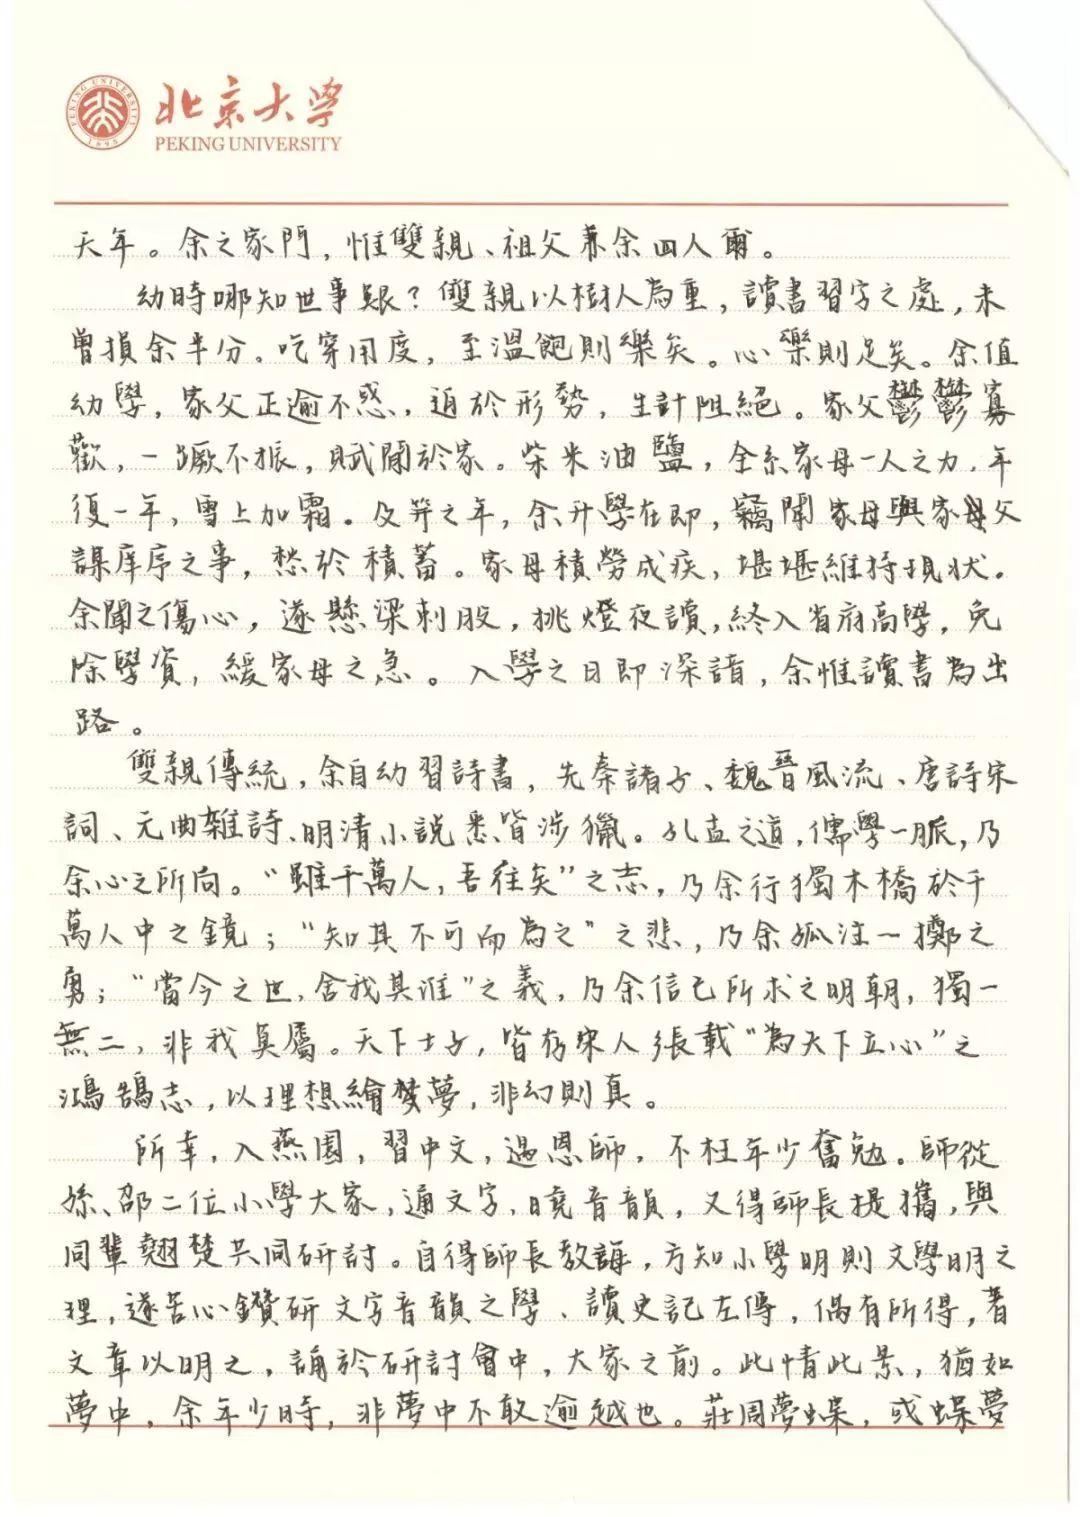 北京大学
PEKING UNIVERSITY
PEKING UNIVERSITY
1898
天年。余之家門，惟雙親、祖父兼余四人爾。
幼時哪知世事艱？雙親以樹人為重，讀書習字之處，未
曾損余半分。吃穿用度，至溫飽則樂矣。心樂則足矣。余值
幼學，家父正逾不惑，迫於形勢，生計阻絕。家父鬱鬱寡
歡，一蹶不振，賦閒於家。柴米油鹽，全系家母一人之力，年
復一年，雪上加霜。及笄之年，余升學在即，竊聞家母與家父
謀庠序之事，愁於積蓄。家母積勞成疾，堪堪維持現狀。
余聞之傷心，遂懸梁刺股，挑燈夜讀，終入省府高學，免
除學資，緩家母之急。入學之日即深諳，余惟讀書為出
路。
雙親傳統，余自幼習詩書，先秦諸子、魏晉風流、唐詩宋
詞、元曲雜詩、明清小說悉皆涉獵。孔孟之道，儒學一脈，乃
余心之所向。“雖千萬人，吾往矣”之志，乃余行獨木橋於千
萬人中之鏡；“知其不可而為之”之悲，乃余孤注一擲之
勇；“當今之世，舍我其誰”之義，乃余信己所求之明朝，獨一
無二，非我莫屬。天下士子，皆存宋人張載“為天下立心”之
鴻鵠志，以理想繪夢，非幻則真。
所幸，入燕園，習中文，遇恩師，不枉年少奮勉。師從
孫、邵二位小學大家，通文字，曉音韻，又得師長提攜，與
同輩翹楚共同研討。自得師長教誨，方知小學明則文學明之
理，遂苦心鑽研文字音韻之學、讀史記左傳，偶有所得，著
文章以明之，誦於研討會中，大家之前。此情此景，猶如
夢中，余年少時，非夢中不敢逾越也。莊周夢蝶，或蝶夢